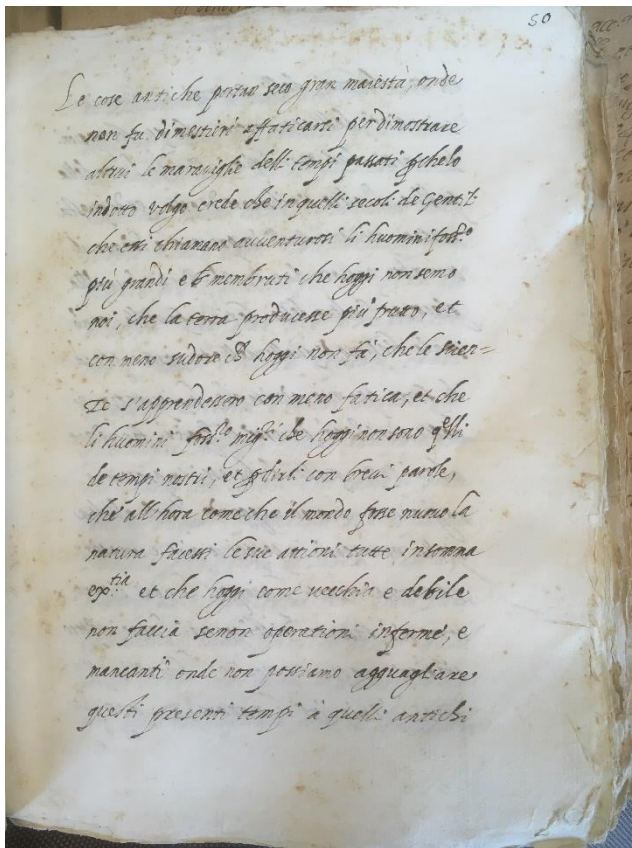 50
Le cose antiche portan seco gran maiestà, onde
non fu dimestieri affaticarsi per dimostrare
altrui le maraviglie delli tempi passati ꝑche lo
indotto volgo crede che in quelli secoli de Gentili
che essi chiamano avventurosi li huomini foss.ro
più grandi e membruti che hoggi non semo
noi, che la terra producesse più frutto, et
con meno sudore che hoggi non fà, che le scien=
ze s'apprendessero con meno fatica, et che
li huomini foss.ro migl.ri che hoggi non sono q.lli
de tempi nostri, et ꝑ dirli con brevi parole,
che all'hora come che il mondo fosse nuovo la
natura facessi le sue attioni tutte in somma
ex.tia et che hoggi come vecchia e debile
non faccia senon operationi inferme, e
mancanti onde non possiamo agguagliare
questi presenti tempi à quelli antichi